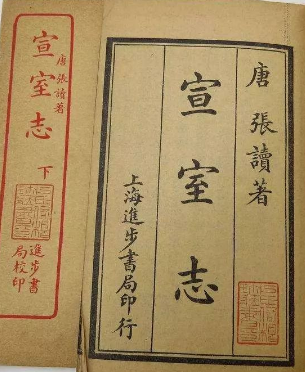 唐張讀著
宣室志
上海進步書局印行
唐張讀著
宣室志
下
進步書
局校印